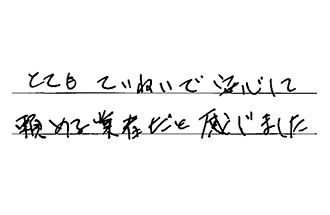 とても ていねいで 安心して
頼める業者だと 感じました